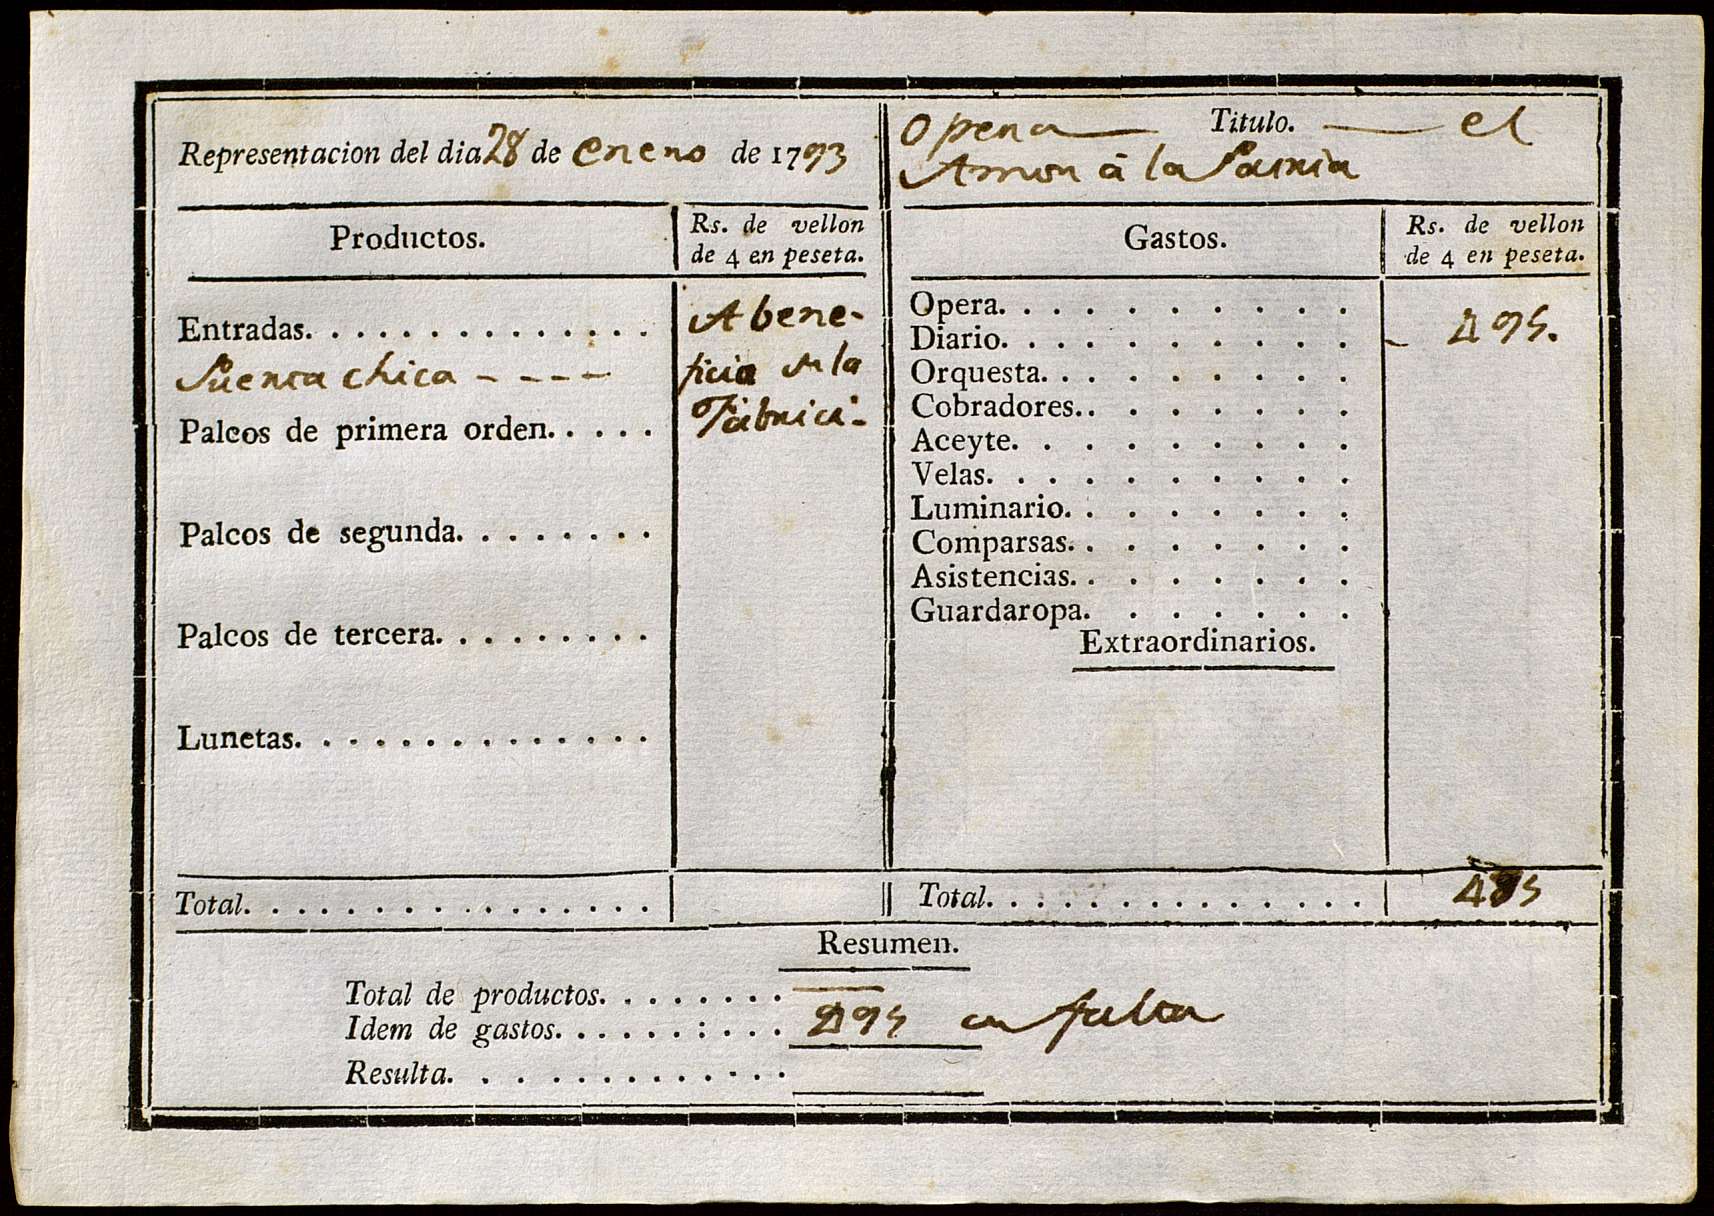 Representacion del dia 28 de enero de 1793
Opera Titulo. el
Amor à la Patria
Productos.
Rs. de vellon
de 4 en peseta.
Entradas.
Puerta chica
Palcos de primera orden.
Palcos de segunda.
Palcos de tercera.
Lunetas.
A bene-
ficio de la
Fabrica.
Total.
Gastos.
Rs. de vellon
de 4 en peseta.
Opera.
Diario. 495.
Orquesta.
Cobradores.
Aceyte.
Velas.
Luminario.
Comparsas.
Asistencias.
Guardaropa.
Extraordinarios.
Total. 495
Resumen.
Total de productos.
Idem de gastos. 495 en falta
Resulta.